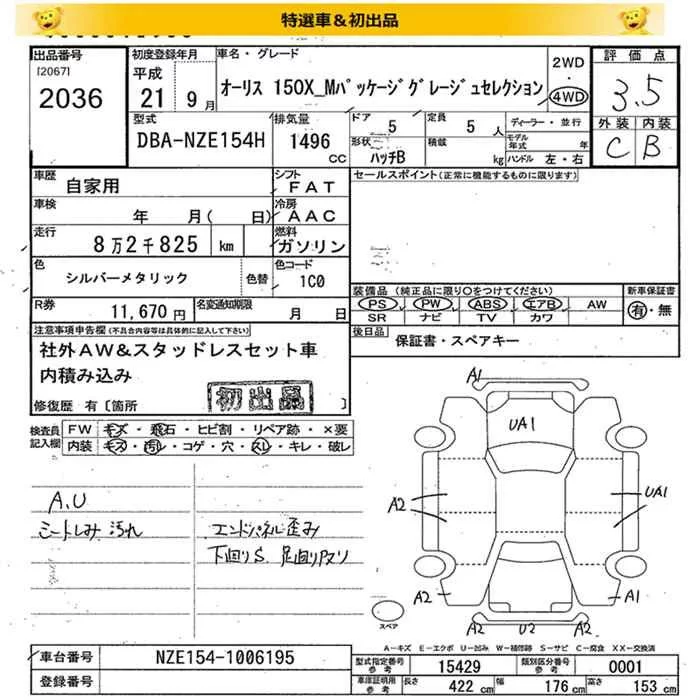 特選車＆初出品
出品番号
[2067]
2036
初度登録年月
平成
21年 9月
車名・グレード
オーリス 150X_Mパッケージグレージュセレクション
2WD
・
4WD
評価点
3.5
外装 内装
C B
型式
DBA-NZE154H
排気量
1496
CC
ドア 5
形状
ハッチB
定員 5 人
積載 kg
ディーラー・並行
モデル年式 年
ハンドル 左・右
車歴
自家用
シフト
FAT
車検 年 月( 日)
冷房
AAC
走行
8万2千825 km
燃料
ガソリン
色
シルバーメタリック
色替
色コード
1C0
R券
11,670円
名変通知期限
月 日
セールスポイント(正常に機能するものに限ります)
装備品(純正品に限り○をつけてください)
PS PW ABS エアB AW
SR ナビ TV カワ
新車保証書
有・無
後日品
保証書・スペアキー
注意事項申告欄(不具合内容等は具体的に記入して下さい)
社外AW＆スタッドレスセット車
内積み込み
修復歴 有〔箇所 〕
初出品
検査員記入欄
FW キズ・飛石・ヒビ割・リペア跡・×要
内装 キズ・汚レ・コゲ・穴・スレ・キレ・破レ
A.U
シートしみ 汚れ
エンドパネル歪み
下回りS. 足回りアマリ
A1
UA1
A2
UA1
A2
A1
A2
U2
A2
スペア
A－キズ E－エクボ U－凹み W－補修跡 S－サビ C－腐食 XX－交換済
車台番号
NZE154-1006195
登録番号
型式指定番号
参考
15429
類別区分番号
参考
0001
車庫証明用
参考
長さ 422 cm
幅 176 cm
高さ 153 cm